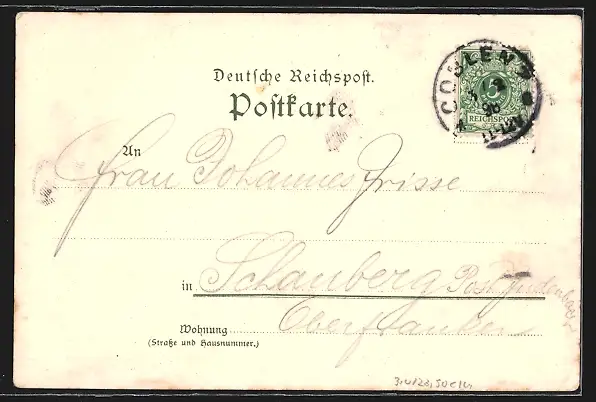 Deutsche Reichspost.
Postkarte.
COBLENZ
5
REICHSPOST
An
Frau Johannes Frisse
in Schauberg Post
Oberfranken
Wohnung
(Straße und Hausnummer.)